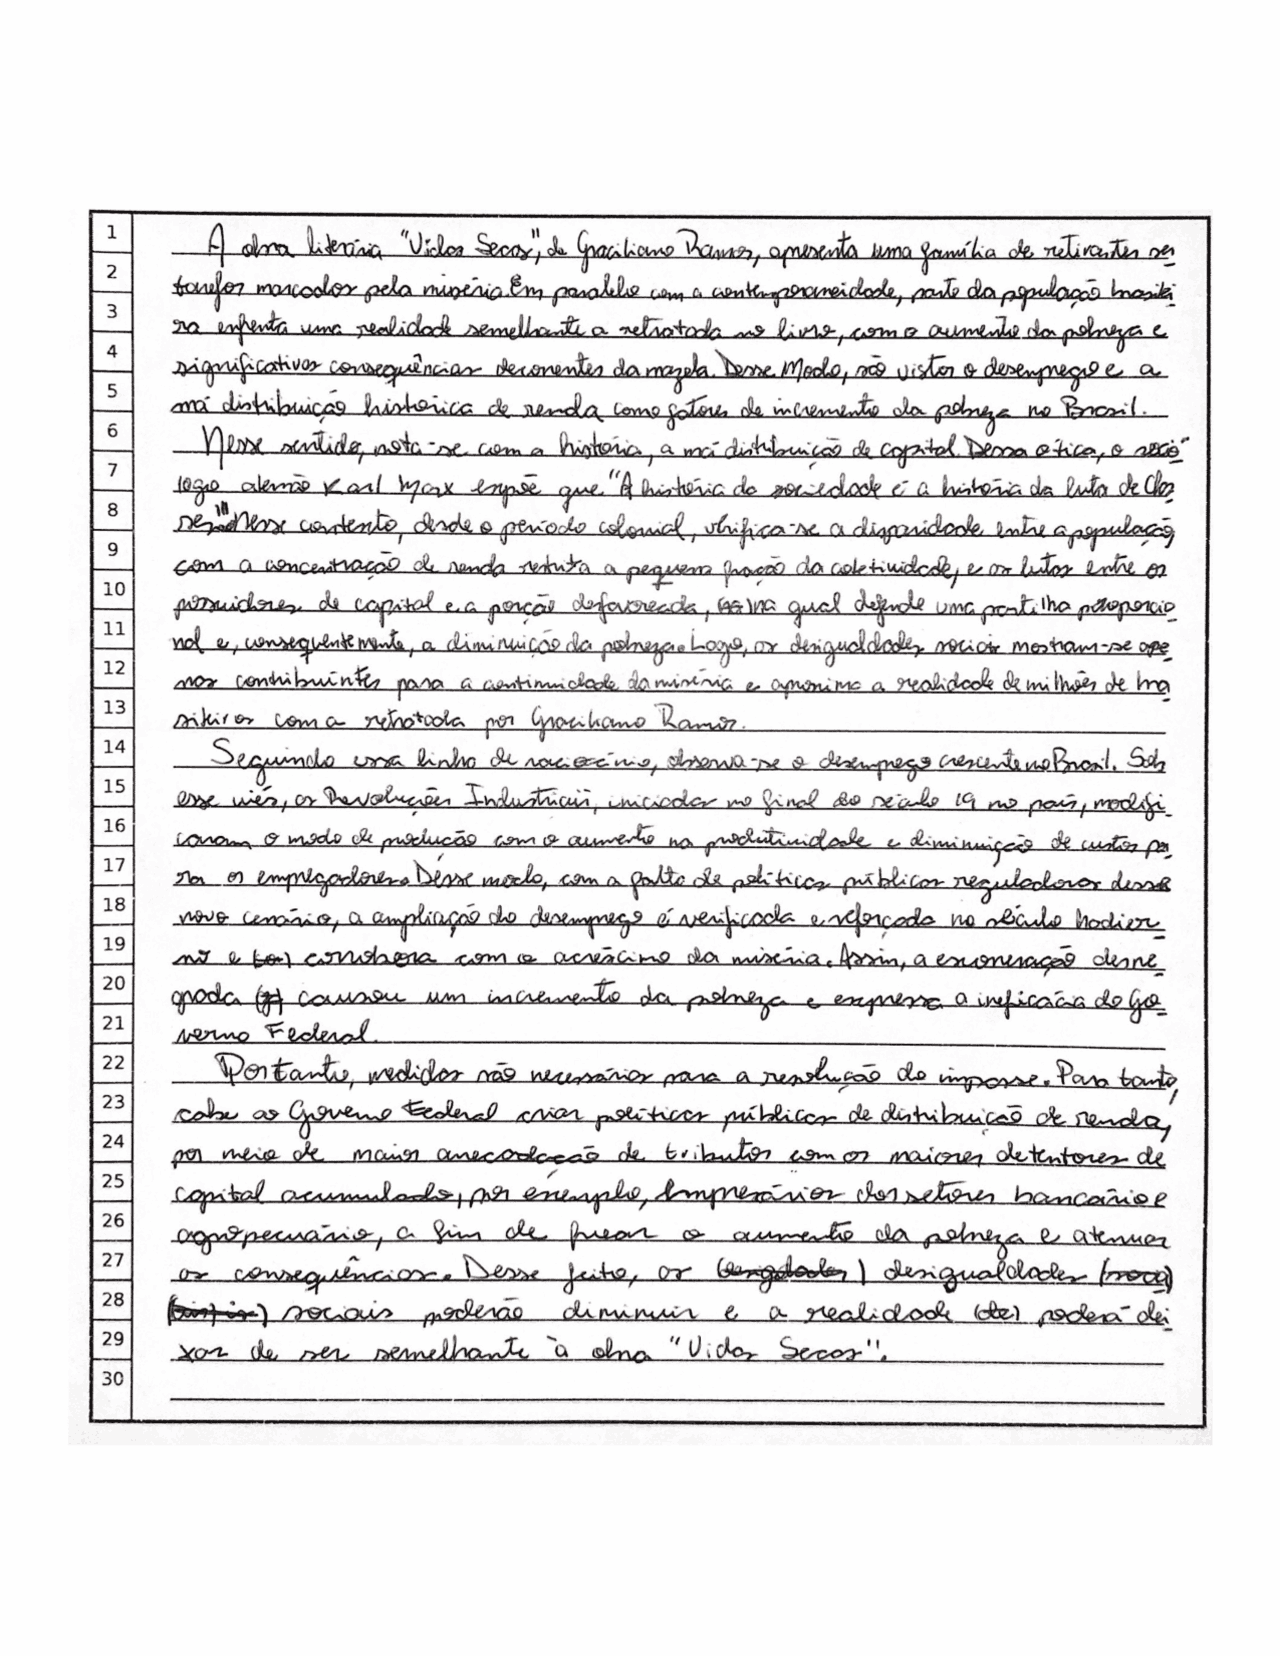 1 A obra literária "Vidas Secas", de Graciliano Ramos, apresenta uma família de retirantes ser
2 tanejos marcados pela miséria. Em paralelo com a contemporaneidade, parte da população brasilei
3 ra enfrenta uma realidade semelhante a retratada no livro, com o aumento da pobreza e
4 significativas consequências decorrentes da mazela. Desse Modo, são vistos o desemprego e a
5 má distribuição histórica de renda como fatores de incremento da pobreza no Brasil.
6 Nesse sentido, nota-se com a história, a má distribuição de capital. Dessa ótica, o soció
7 logo alemão Karl Marx expõe que "A história da sociedade é a história da luta de Clas
8 ses". Nesse contexto, desde o período colonial, verifica-se a disparidade entre a população,
9 com a concentração de renda restrita a pequena fração da coletividade, e as lutas entre os
10 possuidores de capital e a porção desfavorecida, na qual defende uma partilha proporcio
11 nal e, consequentemente, a diminuição da pobreza. Logo, as desigualdades sociais mostram-se ape
12 nas contribuintes para a continuidade da miséria e aproxima a realidade de milhões de bra
13 sileiros com a retratada por Graciliano Ramos.
14 Seguindo essa linha de raciocínio, observa-se o desemprego crescente no Brasil. Sob
15 esse viés, as Revoluções Industriais, iniciadas no final do século 19 no país, modifi
16 caram o modo de produção com o aumento na produtividade e diminuição de custos pa
17 ra os empregadores. Desse modo, com a falta de políticas públicas reguladoras desse
18 novo cenário, a ampliação do desemprego é verificada e reforçada no século hodier
19 no e corrobora com o acréscimo da miséria. Assim, a exoneração desre
20 grada causou um incremento da pobreza e expressa a ineficácia do Go
21 verno Federal.
22 Portanto, medidas são necessárias para a resolução do impasse. Para tanto,
23 cabe ao Governo Federal criar políticas públicas de distribuição de renda,
24 por meio de maior arrecadação de tributos com os maiores detentores de
25 capital acumulado, por exemplo, Empresários dos setores bancário e
26 agropecuário, a fim de frear o aumento da pobreza e atenuar
27 as consequências. Desse feito, as desigualdades
28 sociais poderão diminuir e a realidade poderá dei
29 xar de ser semelhante à obra "Vidas Secas".
30